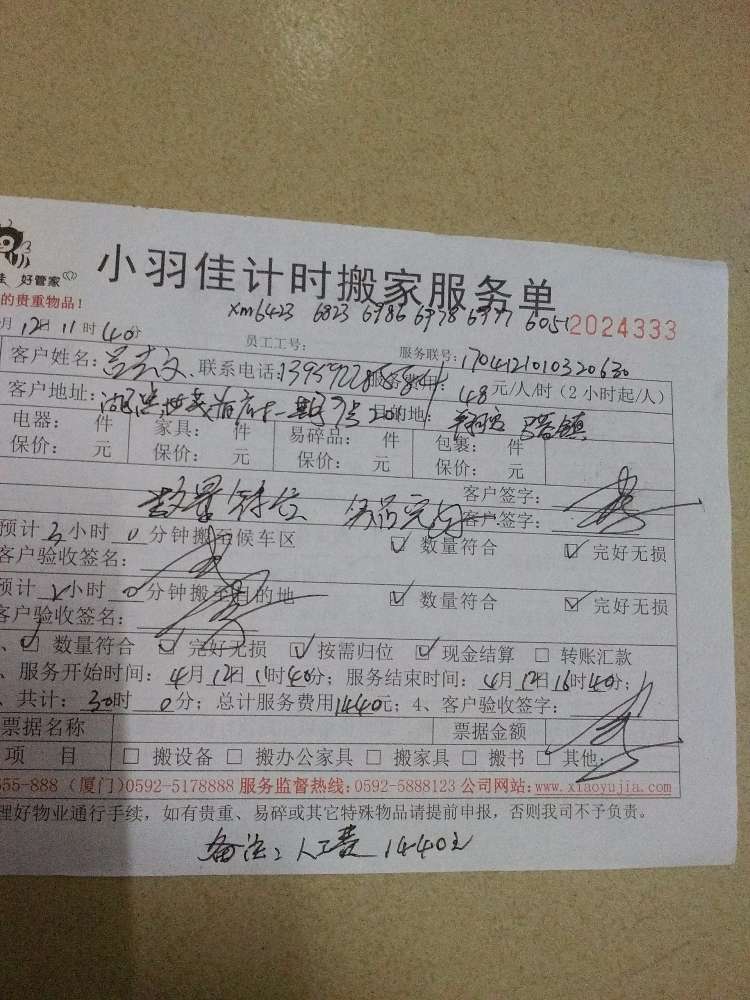 好管家
的贵重物品！
小羽佳计时搬家服务单
xm6423 6823 6986 6978 6977 605
2024333
月12日11时40分 员工工号： 服务联号：1704121010320630
客户姓名： 联系电话： 服务费用：48元/人/时（2小时起/人）
客户地址： 目的地：
电器： 件 家具： 件 易碎品： 件 包裹： 件
保价： 元 保价： 元 保价： 元 保价： 元
客户签字：
数量 物品完好 客户签字：
预计3小时0分钟搬至候车区 ☑ 数量符合 ☑ 完好无损
客户验收签名：
预计2小时0分钟搬至目的地 ☑ 数量符合 ☑ 完好无损
客户验收签名：
、☑ 数量符合 ☑ 完好无损 ☑ 按需归位 ☑ 现金结算 □ 转账汇款
、服务开始时间：4月12日11时40分；服务结束时间：4月12日16时40分；
、共计：30时0分；总计服务费用1440元；4、客户验收签字：
票据名称 票据金额
项 目 □ 搬设备 □ 搬办公家具 □ 搬家具 □ 搬书 □ 其他：
555-888（厦门）0592-5178888 服务监督热线：0592-5888123 公司网站：www.xiaoyujia.com
理好物业通行手续，如有贵重、易碎或其它特殊物品请提前申报，否则我司不予负责。
备注：人工费 1440元